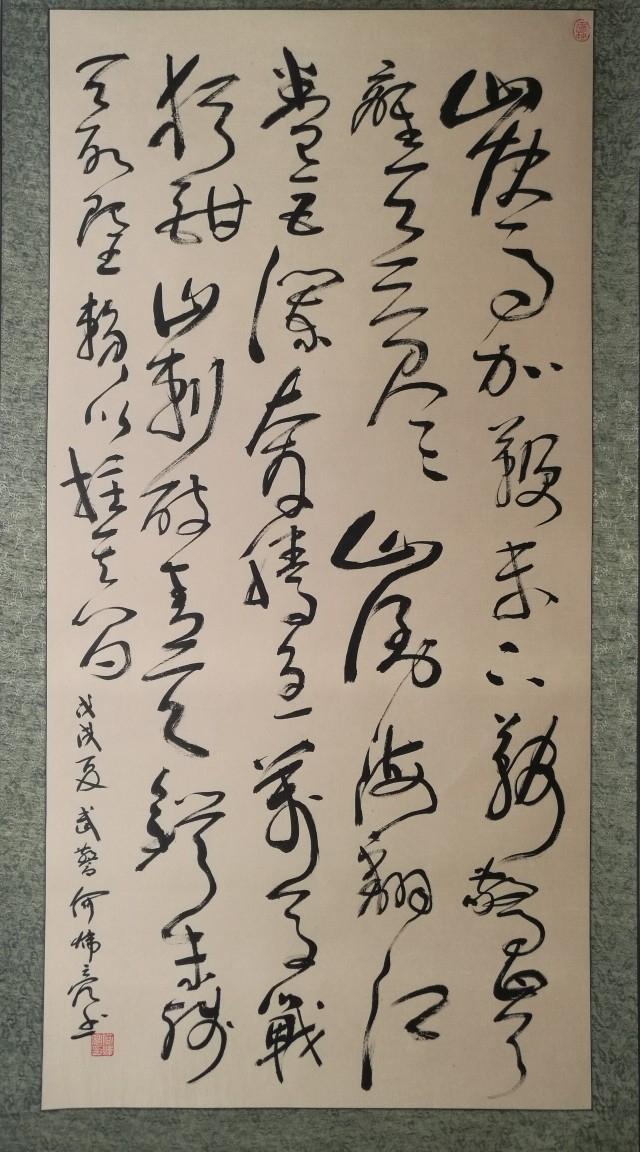 山快馬加鞭未下鞍驚回首
離天三尺三山倒海翻江
卷巨瀾奔騰急萬馬戰
猶酣山刺破青天鍔未殘
天欲墮賴以拄其間
戊戌夏武警何炜亮书